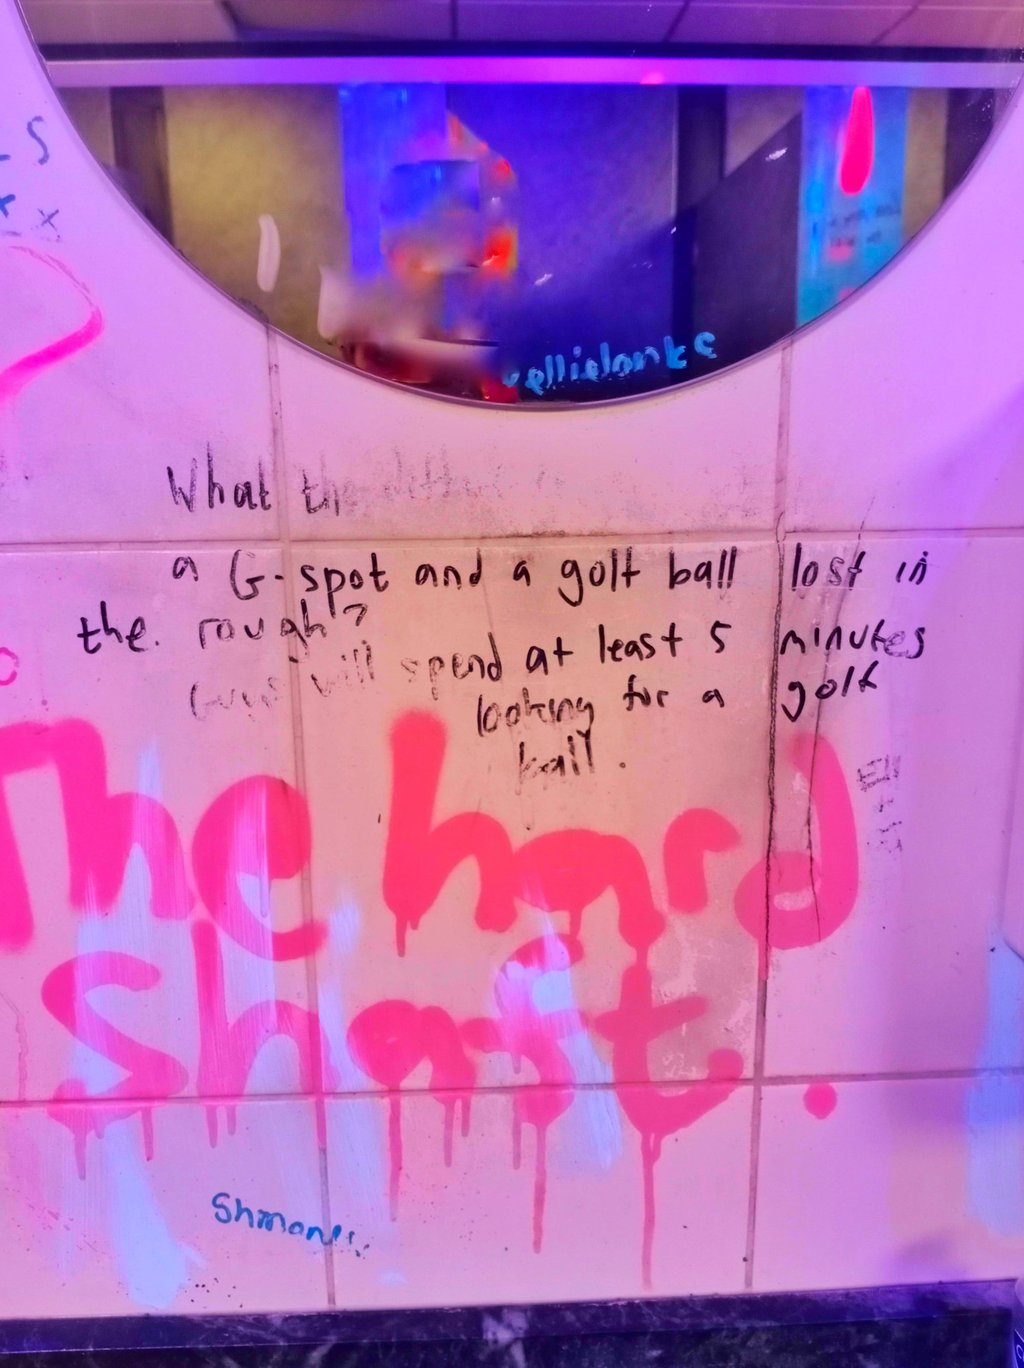 S
x x
ellielouke
What the
a G-spot and a golf ball lost in
the. rough?
Guys will spend at least 5 minutes
looking for a golf
ball.
The hard
Shaft.